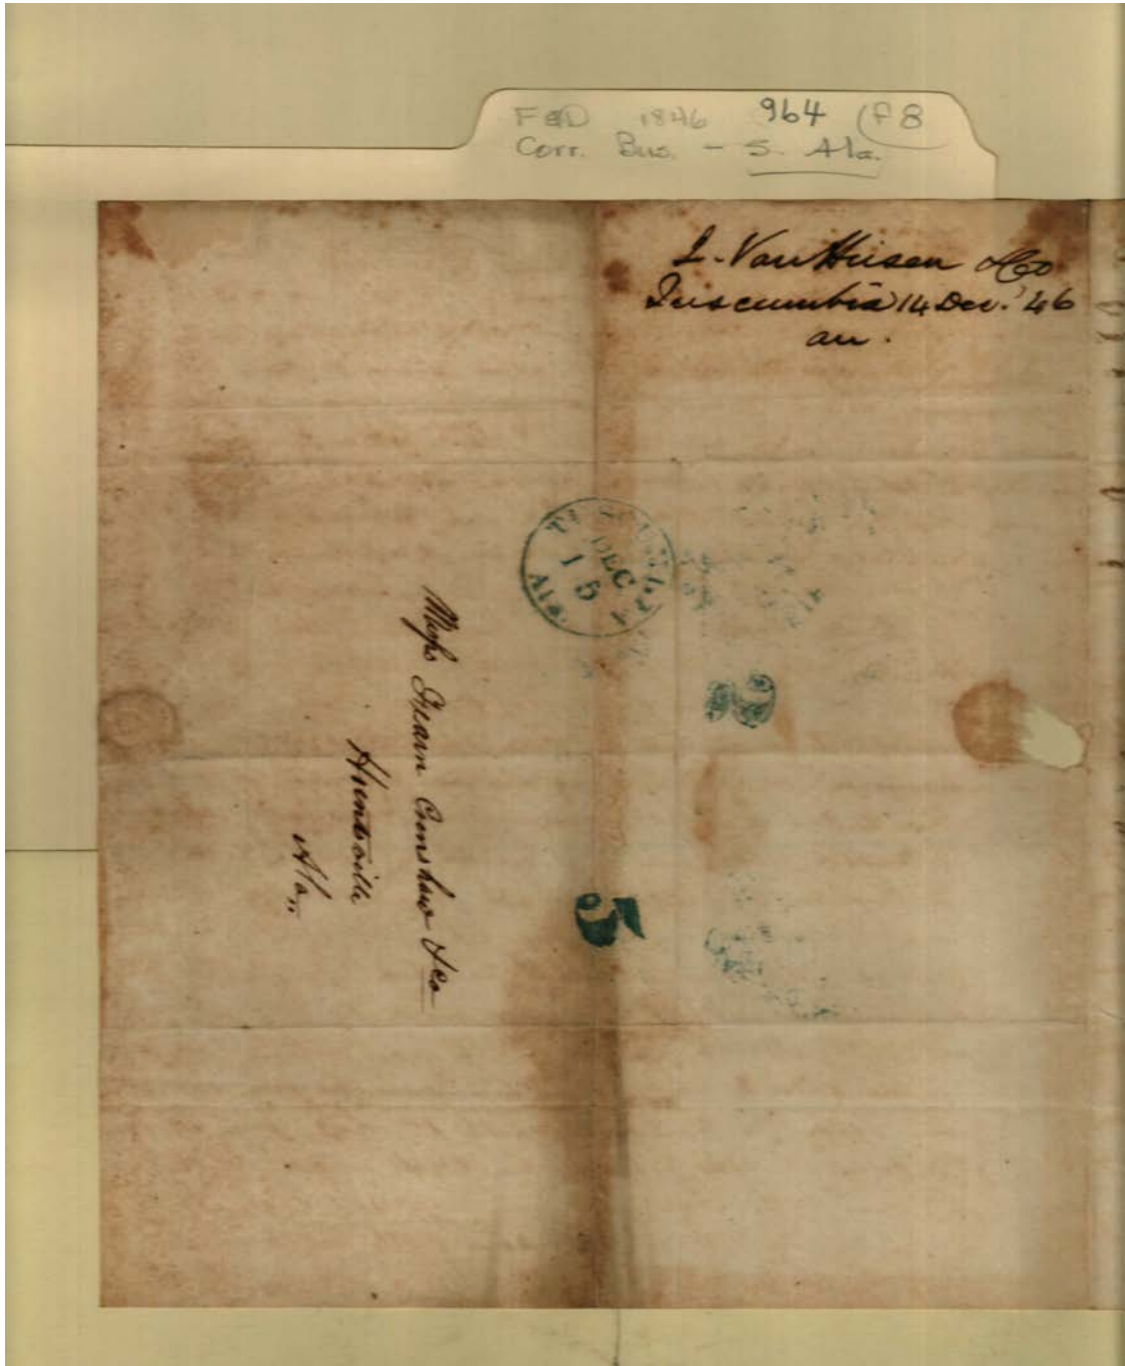 F&D 1846 964 (F8
Corr. Bus. - S. Ala.
L. Van Husen & Co
Tuscumbia 14 Dec. '46
an.
DEC
15
Ala.
5
Mess Fearn Crenshaw & Co
Huntsville
Ala,,